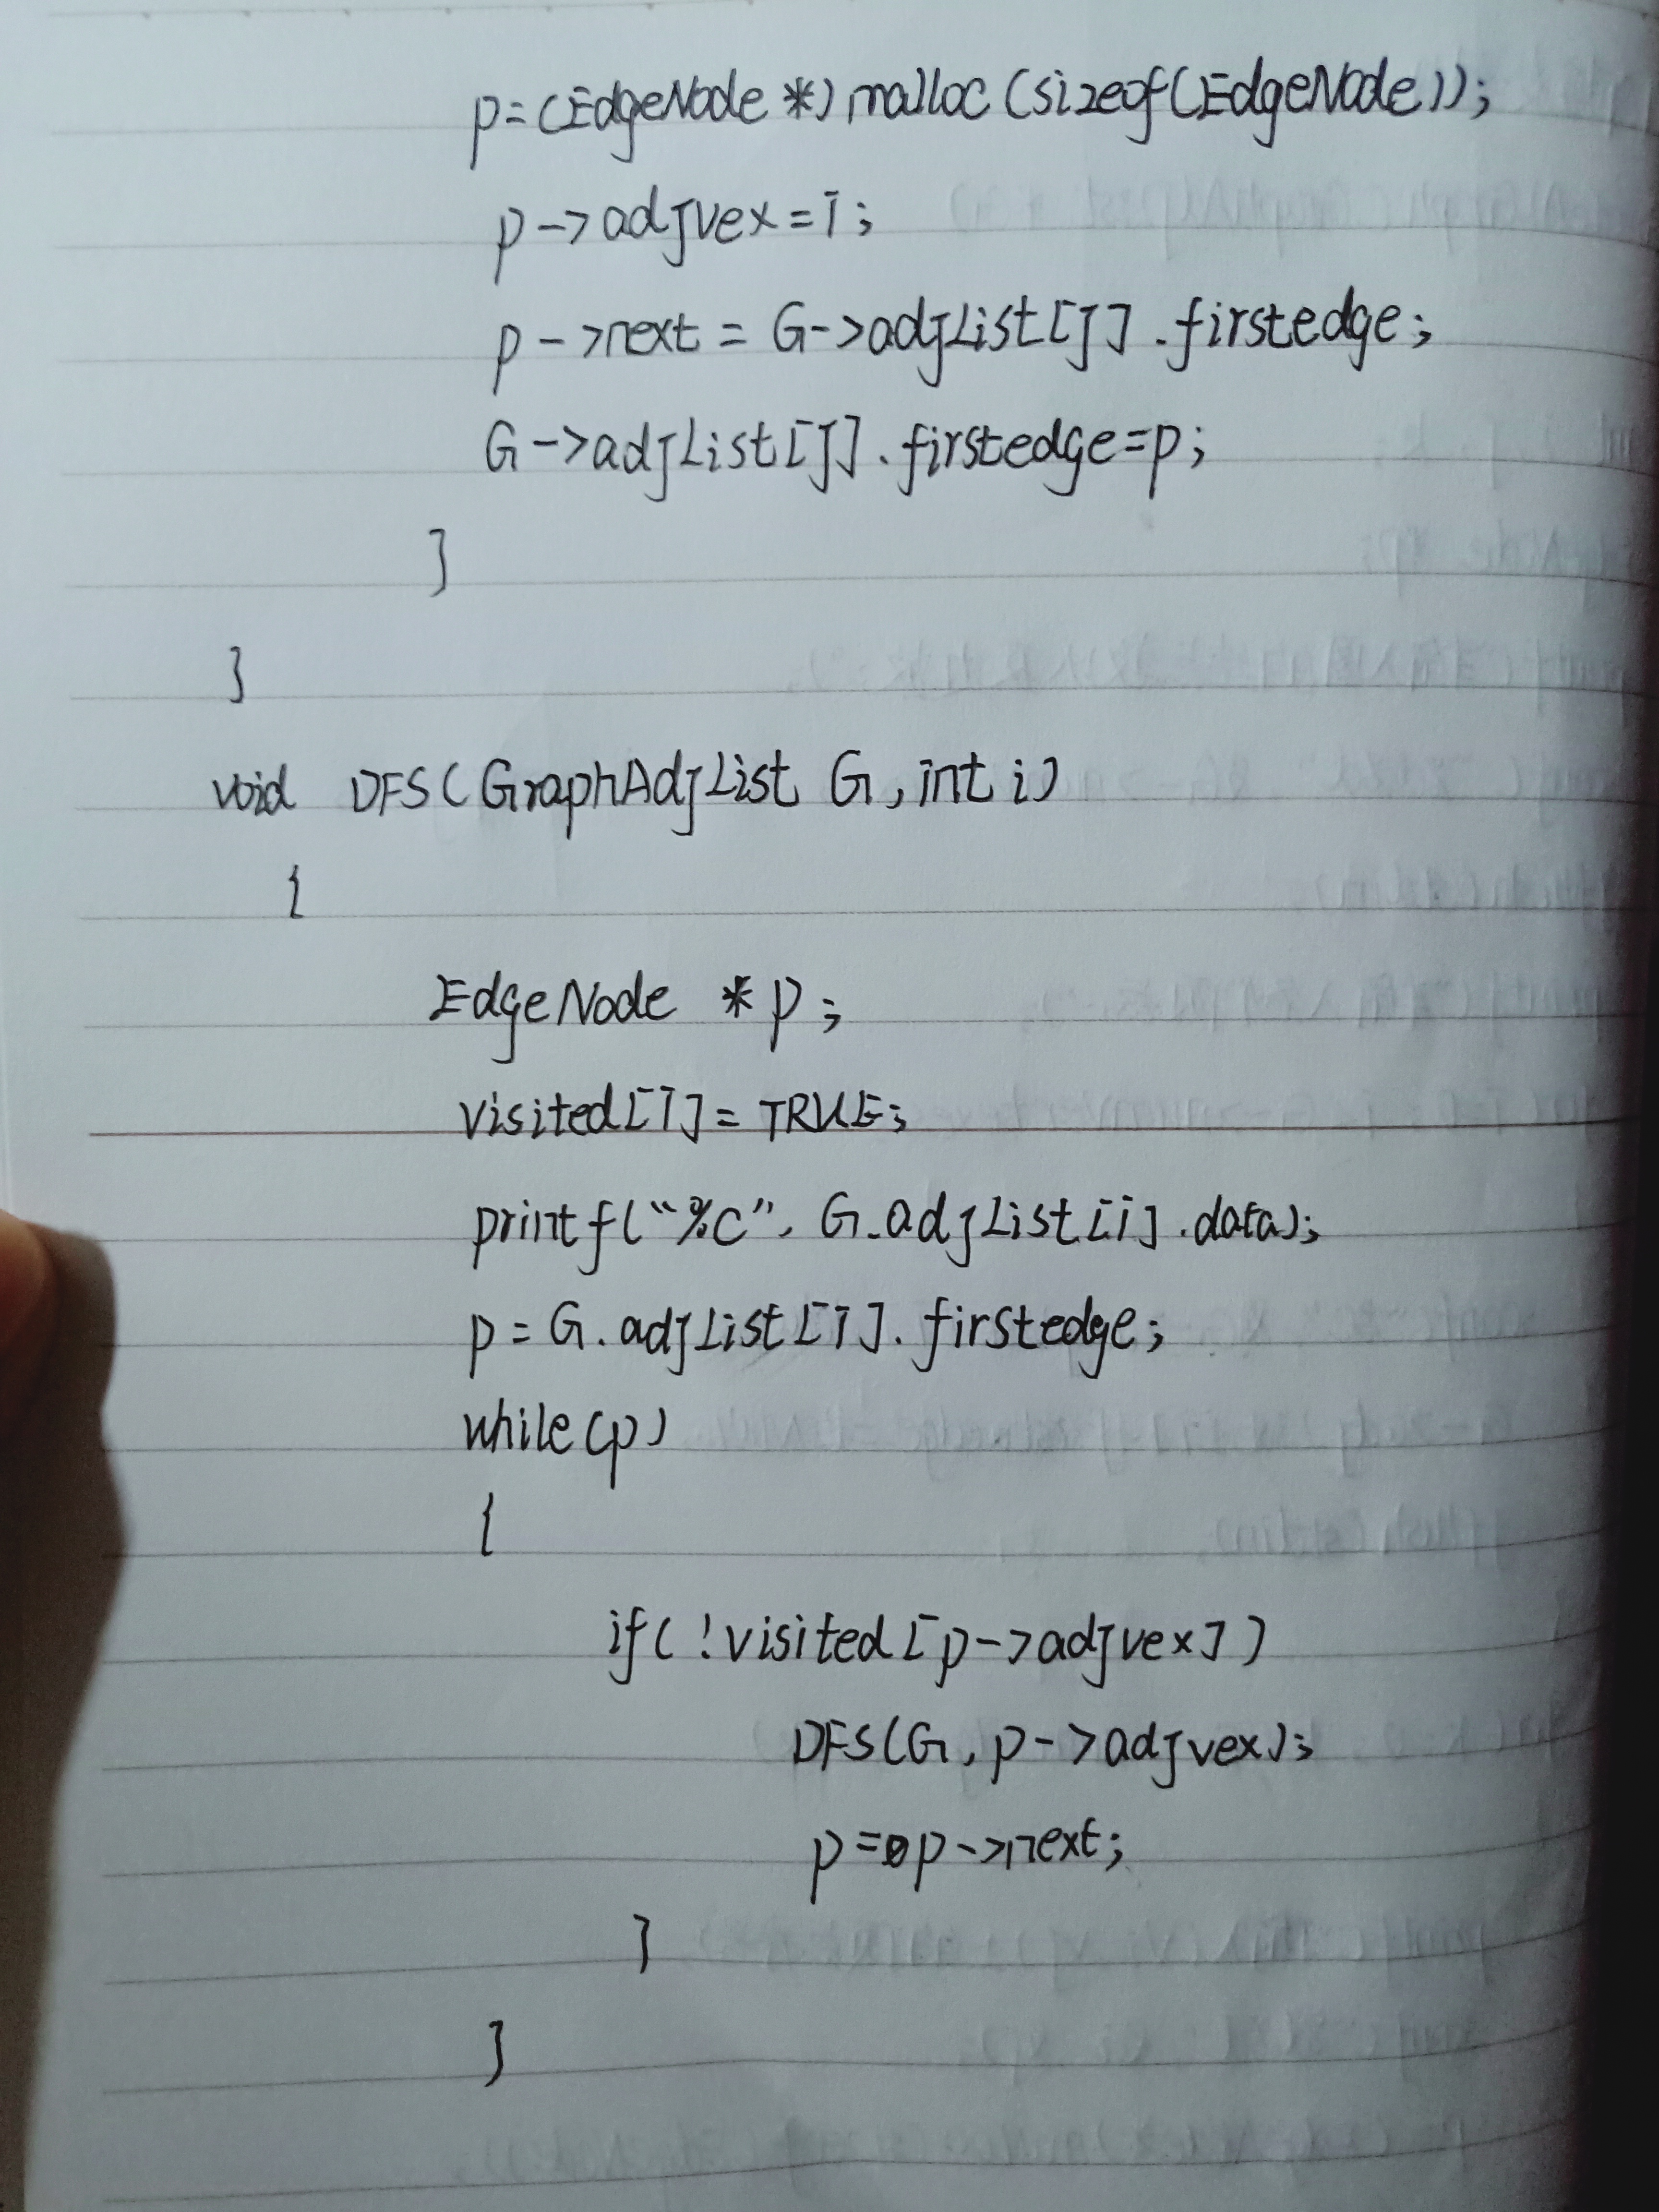 p=(EdgeNode *)malloc(sizeof(EdgeNode));
p->adjvex=i;
p->next = G->adjList[j].firstedge;
G->adjList[j].firstedge=p;
}
}
void DFS(GraphAdjList G,int i)
{
EdgeNode *p;
visited[i]= TRUE;
printf("%c", G.adjList[i].data);
p= G.adjList[i].firstedge;
while(p)
{
if(!visited[p->adjvex])
DFS(G,p->adjvex);
p=p->next;
}
}